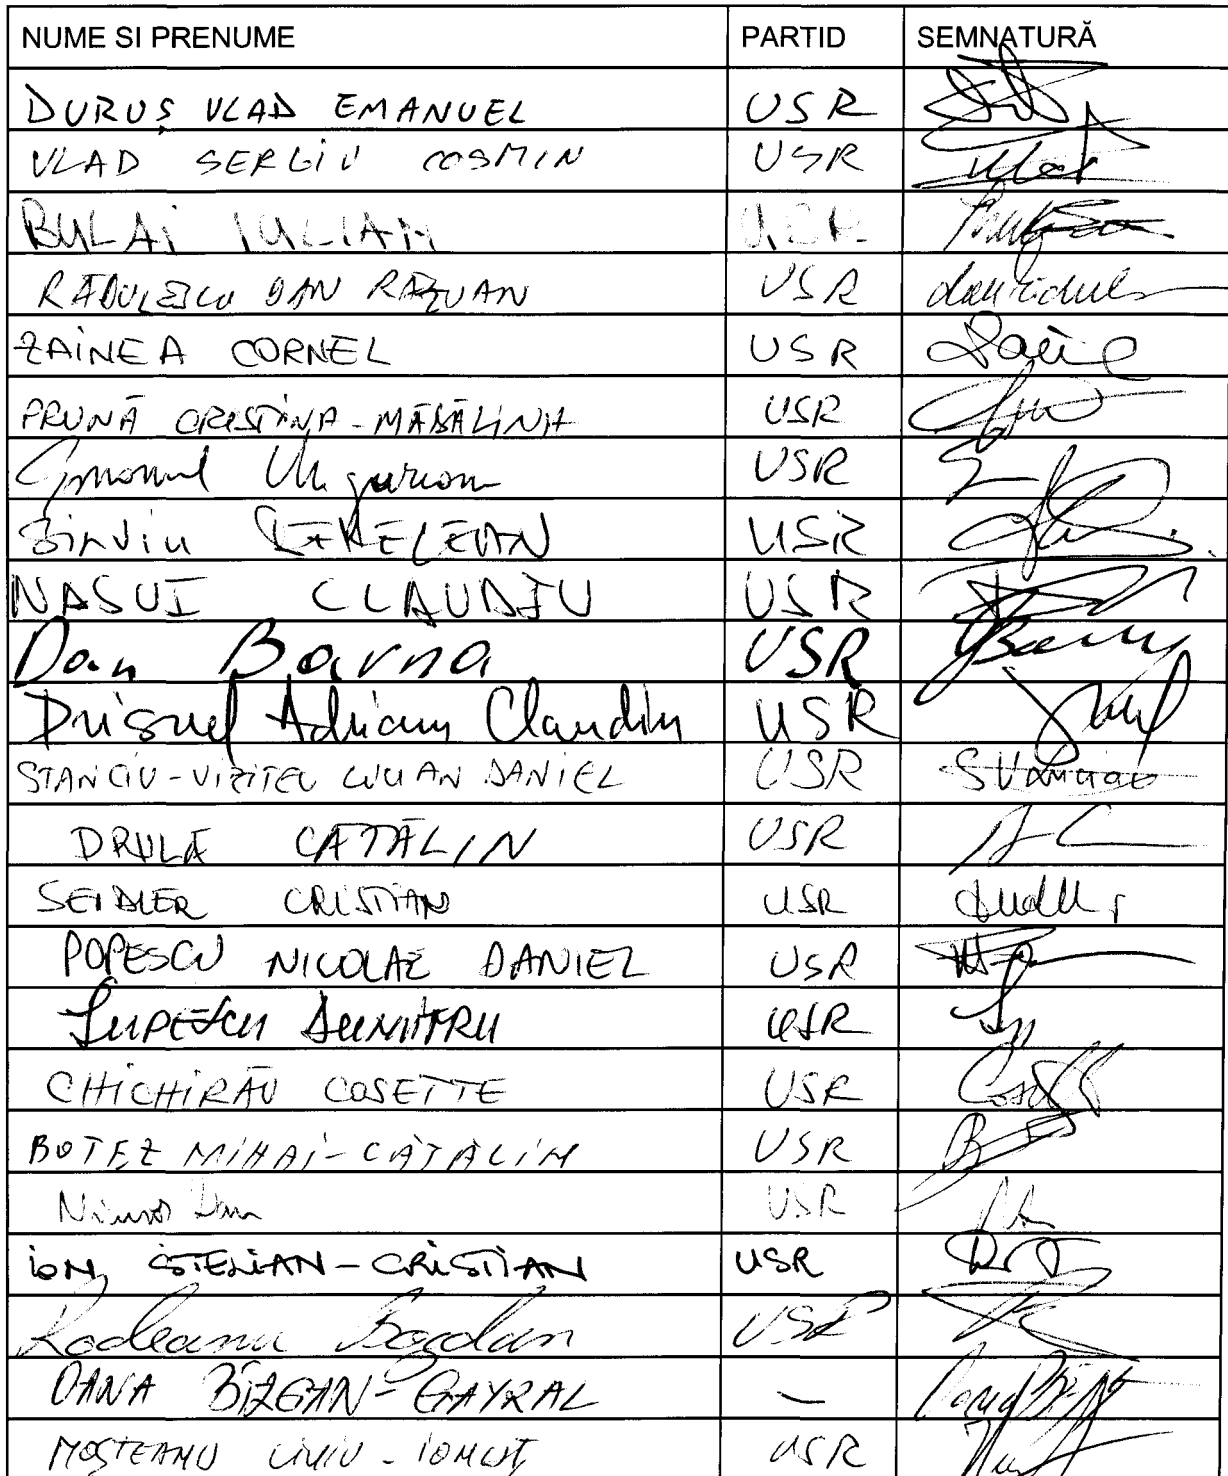 NUME SI PRENUME PARTID SEMNATURĂ
DURUȘ VLAD EMANUEL USR
VLAD SERGIU COSMIN USR Vlad
BULAI IULIAN USR
RĂDULESCU DAN RĂZVAN USR
ZAINEA CORNEL USR
PRUNĂ CRISTINA-MĂDĂLINA USR
Emanuel Ungurean USR
Silviu DEHELEAN USR
NASUI CLAUDIU USR
Dan Barna USR
Prisnel Adrian Claudiu USR
STANCIU-VIZITEU LUCIAN DANIEL USR
DRULĂ CĂTĂLIN USR
SEIDLER CRISTIAN USR
POPESCU NICOLAE DANIEL USR
LUPESCU DUMITRU USR
CHICHIRĂU COSETTE USR
BOTEZ MIHAI-CĂTĂLIN USR
Nicusor Dan USR
ION STELIAN-CRISTIAN USR
Rodeanu Bogdan USR
OANA BÎZGAN-GAYRAL —
MOȘTEANU LIVIU-IONUȚ USR